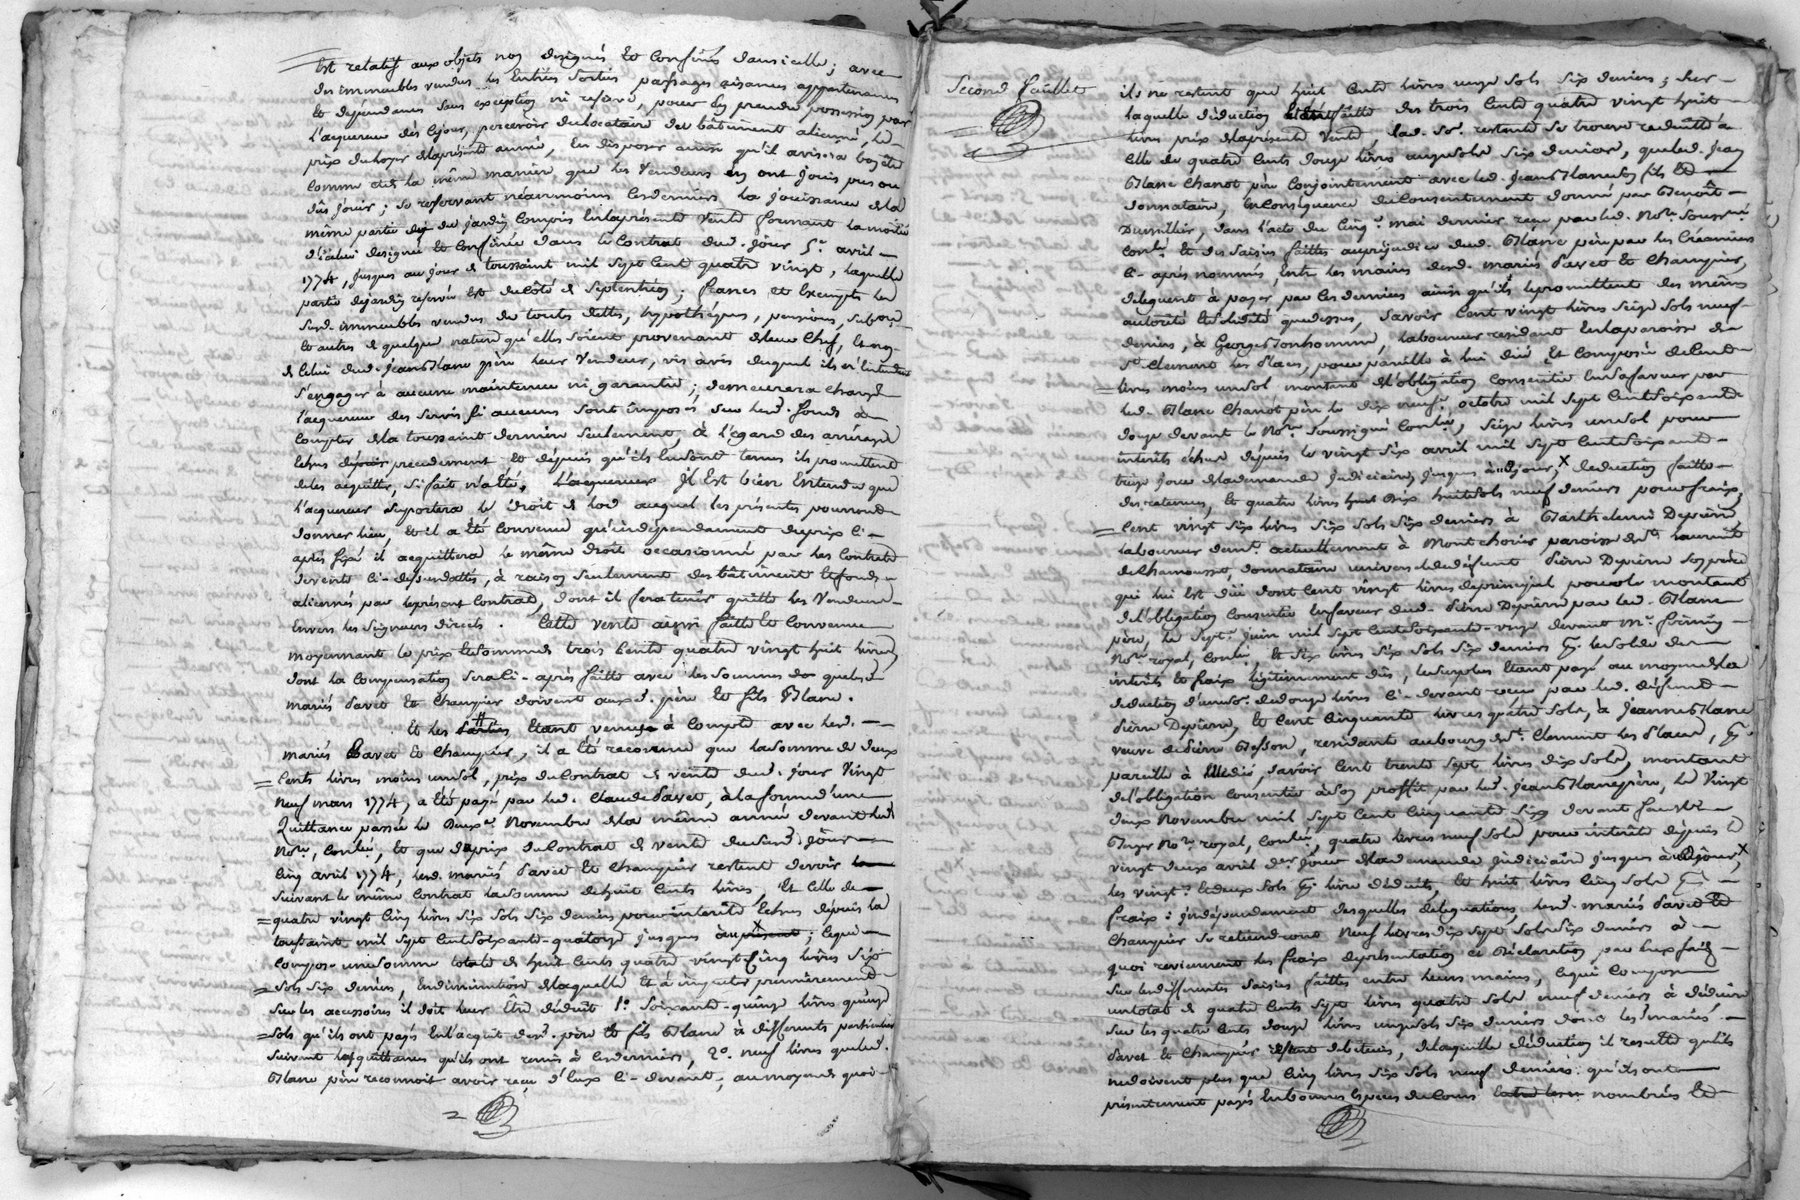 Est relatif aux objets non designés et confinés dans icelle; avec
des immeubles vendus les entrées sorties passages aisances appartenances
et dépendances sans exception ni reserve, pour en prendre possession par
l'acquereur dès ce jour, percevoir du locataire du bâtiment aliené, le
prix du loyer de la présente année, en disposer ainsi qu'il avisera bon être
comme et de la même maniere que les Vendeurs en ont joui pu ou
dû jouir; se reservant néanmoins ces derniers la jouissance de la
même partie de jardin compris en la présente vente formant la moitié
d'icelui designé et confinée dans le contrat dud. jour 5e. avril
1774, jusques au jour de toussaint mil sept cent quatre vingt, laquelle
partie de jardin reservée est du côté de septentrion; francs et exempts les
susd. immeubles vendus de toutes dettes, hypothéques, pensions, subon.
et autres de quelque nature qu'elles soient provenant de leur chef, et non
de celui dud. Jean Blanc père leur vendeur, vis avis duquel ils n'entendent
s'engager à aucune maintenue ni garantie; demeurera chargé
l'acquereur des servis si aucuns sont imposés sur lesd. fonds à
compter de la toussaint derniere seulement, à l'égard des arrérages
échus précédemment et depuis qu'ils en sont tenus ils promettent
de les acquitter, si fait n'a été. l'acquereur Il est bien entendu que
l'acquereur suportera le droit de lod auquel les présentes pourront
donner lieu, et il a été convenu qu'indépendamment du prix ci-
après fixé il acquittera le même droit occasionné par les contrats
de vente ci-dessus dattés, à raison seulement des bâtiment et fonds
aliennés par le présent contrat, dont il sera tenir quitte les Vendeurs
envers les Seigneurs directs. Cette vente ainsi faitte et convenue
moyennant le prix et somme de trois cents quatre vingt huit livres
dont la compensation sera ci-après faitte avec les sommes desquelles
mariés Pavet et Champier doivent auxd. père et fils Blanc.
Et les Parties étant venues à compte avec lesd.
mariés Pavet et Champier, il a été reconnu que la somme de deux
cents livres moins un sol, prix du contrat de vente dud. jour vingt
neuf mars 1774, a été payé par led. Claude Pavet, à la forme d'une
Quittance passée le deuxe. Novembre de la même année devant led.
Nore., conlée, et que du prix du contrat de vente du susd. jour
cinq avril 1774, lesd. mariés Pavet et Champier restent devoir
suivant le même contrat la somme de huit cents livres, et celle de
quatre vingt cinq livres six sols six deniers pour intérêts échus depuis la
toussaint mil sept cent soixante-quatorze jusques au présent; ce qui
compose une somme totale de huit cents quatre vingt cinq livres six
sols six deniers, en diminution de laquelle et à imputer premièrement
sur les accessoires il doit leur être déduit 1o. soixante-quinze livres quinze
sols qu'ils ont payés en l'acquit desd. père et fils Blanc à differents particuliers
suivant les quittances qu'ils ont remis à ces derniers, 2o. neuf livres que led.
Blanc père reconnoit avoir reçu d'eux ci-devant; au moyen de quoi
Second feuillet
ils ne restent que huit cents livres onze sols six deniers; sur
laquelle déduction faitte des trois cents quatre vingt huit
livres prix de la présente Vente, lad. se. restante se trouve reduitte à
celle de quatre cents douze livres onze sols six deniers, que led. Jean
Blanc Chanot père conjointement avec led. Jean Blanc son fils et
donnataire, en conséquence du consentement donné par Benoîte
Dumillier, dans l'acte du cinqe. mai dernier reçu par led. Nore. soussigné
conlé. et des saisies faittes au préjudice dud. Blanc père par les créanciers
ci-après nommés, entre les mains desd. mariés Pavet et Champier,
deleguent à payer par ces derniers ainsi qu'ils le promettent des mêmes
autorité et solidité que dessus, savoir cent vingt livres seize sols neuf
deniers, à George Bonhomme, laboureur residant en la paroisse de
St. Clement les Places, pour pareille à lui due et composée de cent
livres moins un sol montant de l'obligation consentie en sa faveur par
led. Blanc Chanot père le dix neufe. octobre mil sept cent soixante
douze devant le Nore. soussigné conlée, seize livres un sol pour
intérêts échus depuis le vingt six avril mil sept cent soixante
treize jour de la demande judiciaire, jusques à ce jour, déduction faitte
des retenues, et quatre livres dix huit sols neuf deniers pour fraix;
cent vingt six livres six sols six deniers à Barthelemi Depierre
laboureur demt. actuellement à Montchorier paroisse de St. Laurent
de Chamousset, donnataire universel de défunt Pierre Depierre son père
qui lui est dûë dont cent vingt livres de principal pour le montant
de l'obligation consentie en faveur dud. Pierre Depierre par led. Blanc
père, le septe. juin mil sept cent soixante-onze devant Me.
Nore. royal, conlée, et six livres six sols six deniers pr. le solde des
interêts et fraix legitimement dûs, le surplus étant payé au moyen de la
déduction d'une se. de douze livres ci-devant reçue par led. défunt
Pierre Depierre, et cent cinquante livres quatre sols, à Jeanne Blanc
veuve de Pierre Besson, residante au bourg de St. Clement les Places, pr.
pareille à elle dûë, savoir cent trente sept livres dix sols, montant
de l'obligation consentie à son proffit par led. Jean Blanc père, le vingt
deux Novembre mil sept cent cinquante six devant
Nore. royal, conlée, quatre livres neuf sols pour intérêts depuis le
vingt deux avril der. jour de la demande judiciaire jusques à ce jour,
les vingte. et deux sols pr. livre déduits, et huit livres cinq sols pr.
fraix: independamment desquelles delegations, lesd. mariés Pavet et
Champier se retiendront neuf livres dix sept sols six deniers à
quoi reviennent les fraix de présentation et déclaration par eux faits
sur les differentes saisies faittes entre leurs mains, ce qui compose
un total de quatre cents sept livres quatre sols neuf deniers à déduire
sur les quatre cents douze livres onze sols six deniers dont les mariés
Pavet et Champier étoient débiteurs, de laquelle déduction il resulte qu'ils
ne doivent plus que cinq livres six sols neuf deniers qu'ils ont
présentement payés en bonnes espèces du cours nombrées et